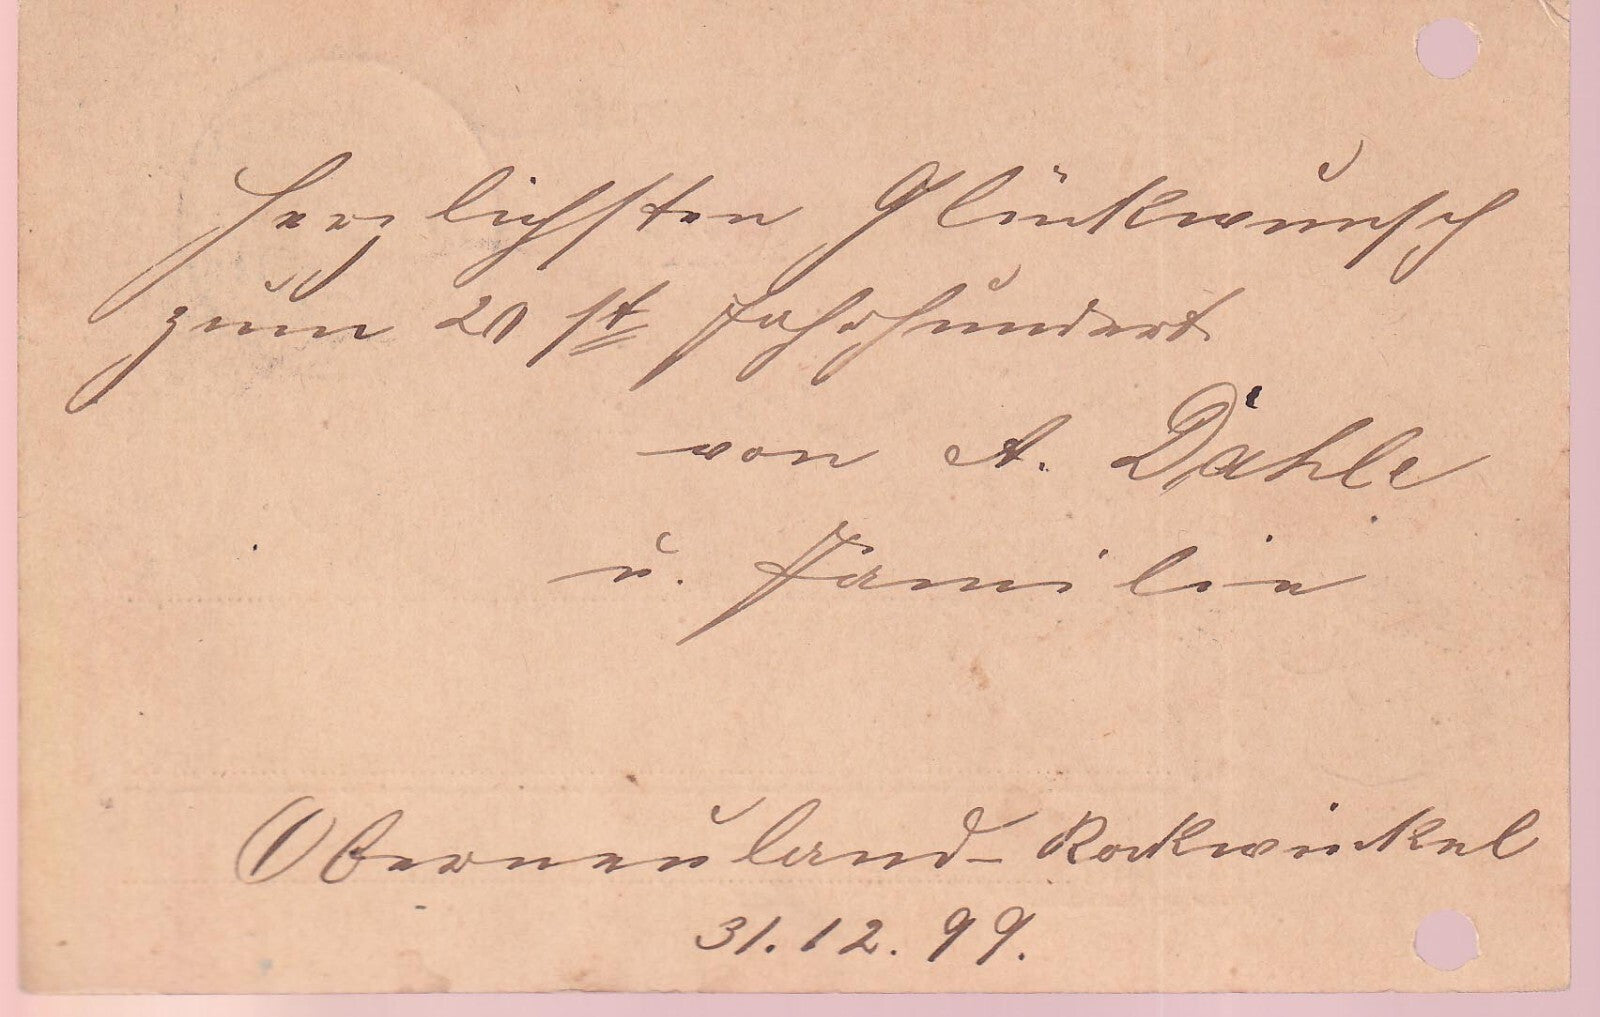 Herzlichsten Glückwunsch
zum 20 st Jahrhundert
von A. Dähle
u. Familie
Oberneuland-Rockwinkel
31.12.99.